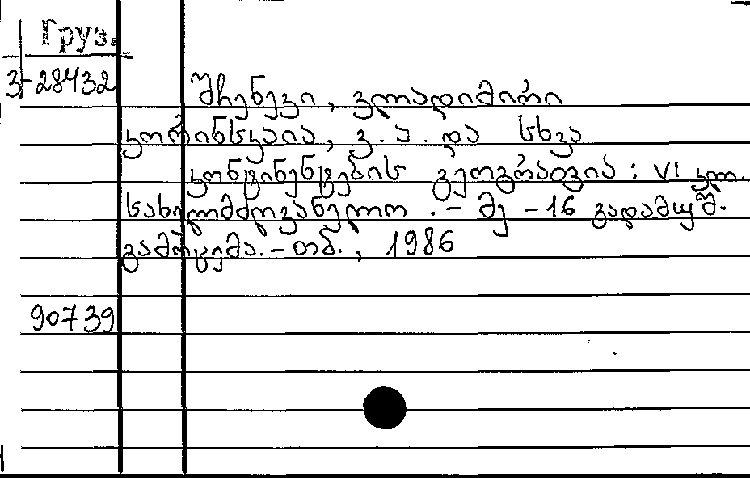 Груз.
3-28432
შჩენევი, ვლადიმირი
კორინსკაია, ვ.ა. და სხვა
კონტინენტების გეოგრაფია: VI კლ.
სახელმძღვანელო .- მე -16 გადამუშ.
გამოცემა.- თბ., 1986
90739